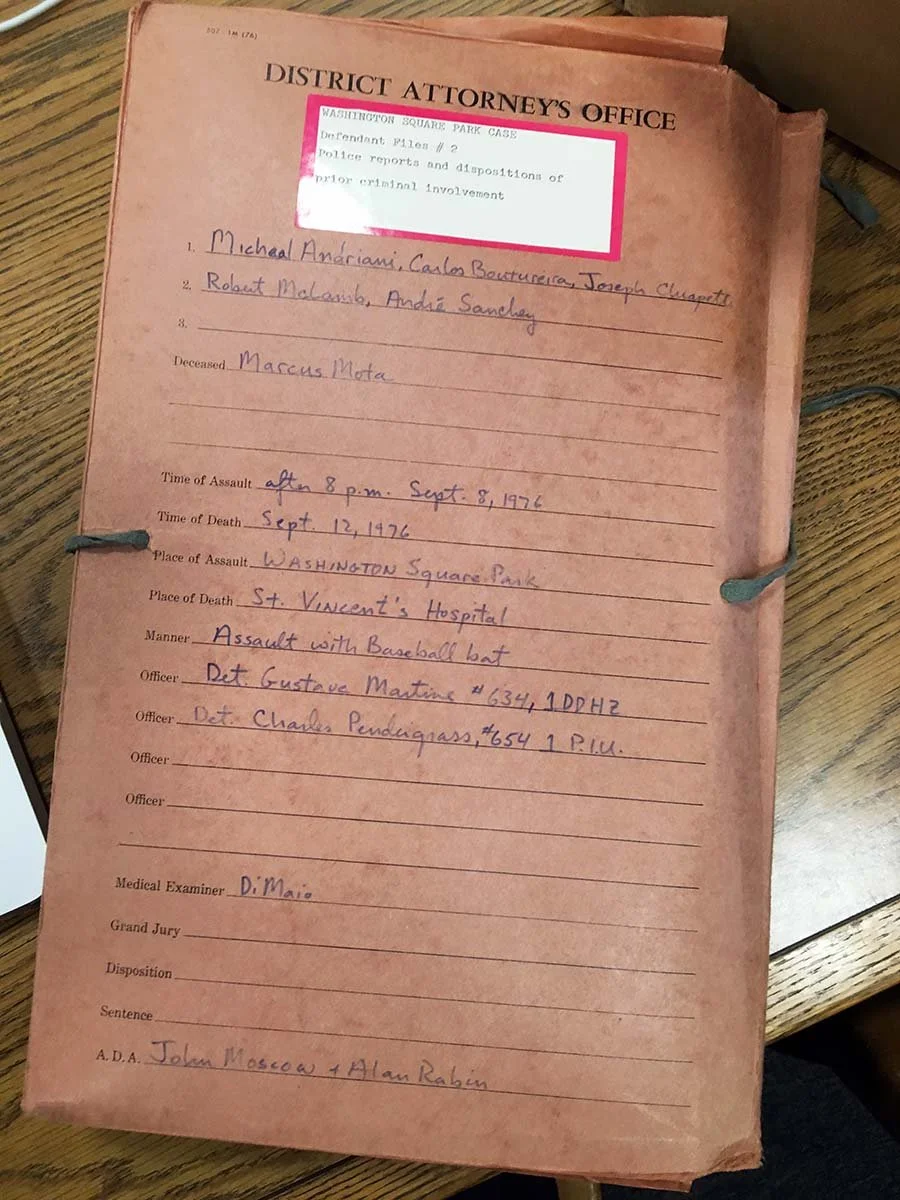 507 - 1M (76)
DISTRICT ATTORNEY'S OFFICE
WASHINGTON SQUARE PARK CASE
Defendant Files # 2
Police reports and dispositions of
prior criminal involvement
1. Michael Andriani, Carlos Boutureira, Joseph
2. Robert McLamb, André Sanchey
3.
Deceased Marcus Mota
Time of Assault after 8 p.m. Sept. 8, 1976
Time of Death Sept. 12, 1976
Place of Assault WASHINGTON Square Park
Place of Death St. Vincent's Hospital
Manner Assault with Baseball bat
Officer Det. Gustave Martine #634, 1 DD HZ
Officer Det. Charles Pendergrass, #654 1 P.I.U.
Officer
Officer
Medical Examiner DiMaio
Grand Jury
Disposition
Sentence
A.D.A. John Moscow + Alan Rabin